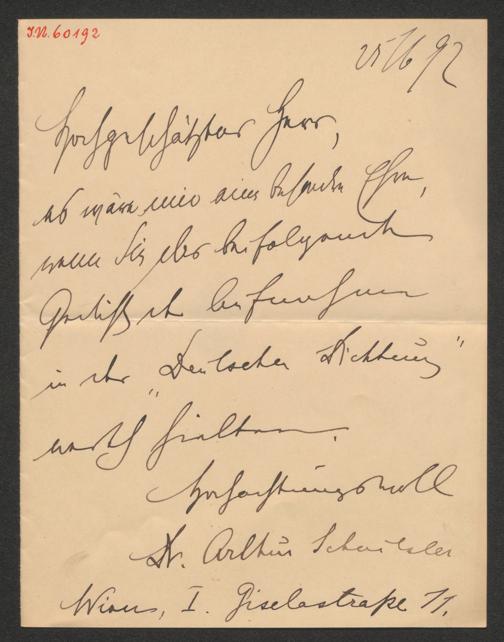 I.N. 60192
25/6 92
Hochgeschätzter Herr,
es wäre mir eine besondre Ehre,
wenn Sie das beifolgende
Gedicht der Aufnahme
in der „Deutschen Dichtung"
werth hielten.
Hochachtungsvoll
Dr. Arthur Schnitzler
Wien, I. Giselastraße 11.